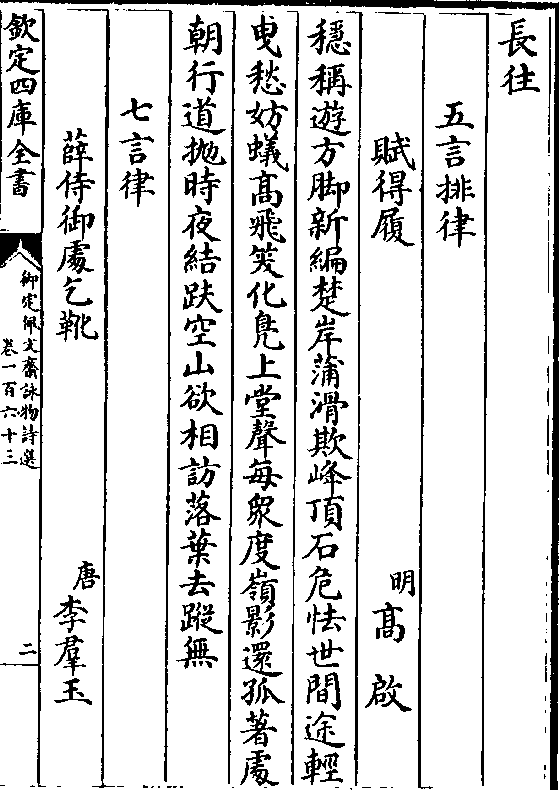 長往
五言排律
賦得履 明髙啟
穩稱遊方脚新編楚岸蒲滑欺峰頂石危怯世間途輕
曵愁妨蟻髙飛笑化鳬上堂聲每衆度嶺影還孤著處
朝行道抛時夜結趺空山欲相訪落葉去蹤無
七言律
薛侍御處乞靴 唐李羣玉
欽定四庫全書
御定佩文齋詠物詩選
卷一百六十三
二